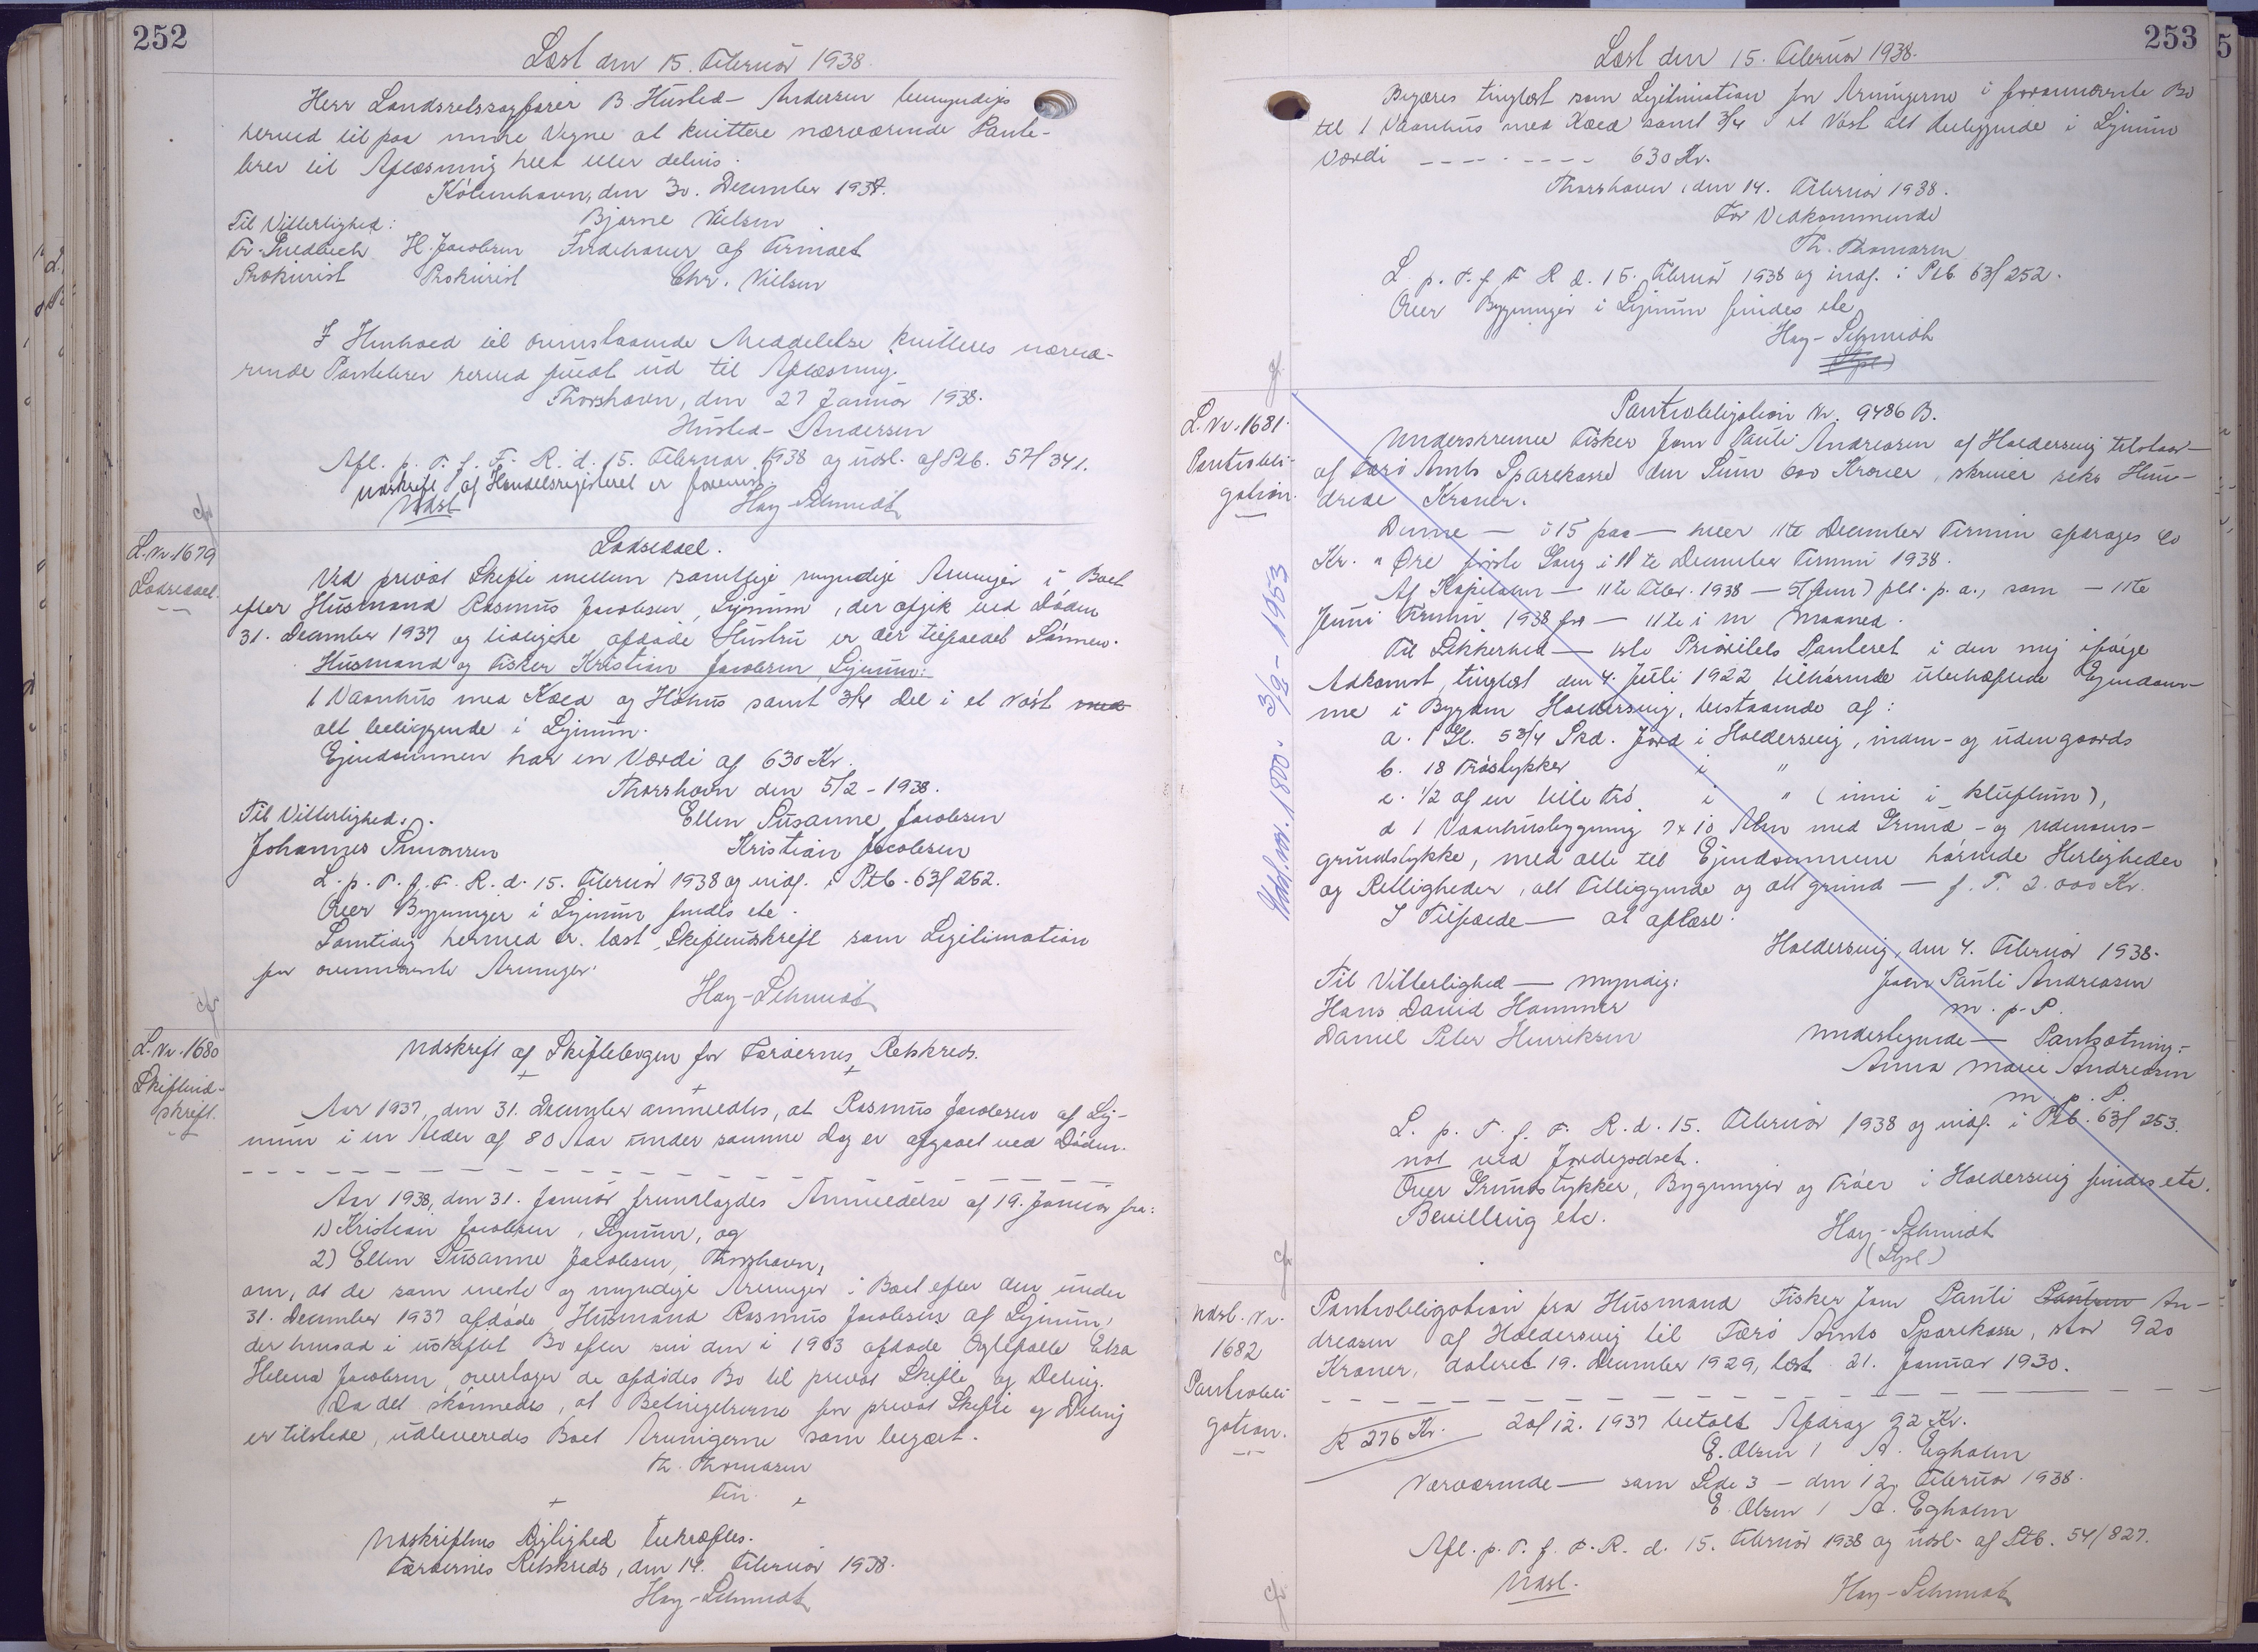 252
Læst den 15. Februar 1938.
Herr Landsretssagfører B Husted-Andersen bemyndiges
herved til paa mine Vegne at kvittere nærværende Pante-
brev til Aflæsning helt eller delvis.
København, den 30. December 1937.
Til Vitterlighed: Bjarne Nielsen
H. Jacobsen Indehaver af Firmaet
Prokurist Prokurist Chr. Nielsen
I Henhold til ovenstaaende Meddelelse kvitteres nærvæ-
rende Pantebrev herved fuldt ud til Aflæsning.
Thorshavn, den 27 Januar 1938.
Husted-Andersen
Afl. p. T. f. F. R. d. 15. Februar 1938 og udsl. af Ptb. 57/341.
Udskrift af Handelsregisteret er forevist.
Udsl. Hay-Schmidt
L. Nr. 1679
Lodseddel.
Lodseddel.
Ved privat Skifte mellem samtlige myndige Arvinger i Boet
efter Husmand Rasmus Jacobsen, Ljimum, der afgik ved Døden
31. December 1937 og tidligere afdøde Hustru er der tilfaldet Sønnen.
Husmand og Fisker Kristian Jacobsen, Ljimum:
1 Vaanhus med Kæld og Høhus samt 3/4 Del i et Nøst med
alt beliggende i Ljimum.
Ejendommen har en Værdi af 630 Kr.
Thorshavn den 5/2 - 1938.
Til Vitterlighed: Ellen Susanne Jacobsen
Johannes Simonsen Kristian Jacobsen
L. p. T. f. F. R. d. 15. Februar 1938 og indf. i Ptb. 63/252.
Over Bygninger i Ljimum findes ete.
Samtidig hermed er læst Skifteudskrift som Legitimation
for ovennævnte Arvinger.
Hay-Schmidt
L. Nr. 1680
Skifteud-
skrift.
Udskrift af Skiftebogen for Færøernes Retskreds.
Aar 1937, den 31. December anmeldtes, at Rasmus Jacobsen af Lji-
mum i en Alder af 80 Aar under samme Dag er afgaaet ved Døden.
Aar 1938, den 31. Januar fremlagdes Anmeldelse af 19. Januar fra:
1) Kristian Jacobsen, Ljimum, og
2) Ellen Susanne Jacobsen, Thorshavn,
om, at de som eneste og myndige Arvinger i Boet efter den under
31. December 1937 afdøde Husmand Rasmus Jacobsen af Ljimum,
der hensad i uskiftet Bo efter sin den i 1903 afdøde Ægtefælle Elsa
Helena Jacobsen, overtager de afdødes Bo til privat Skifte og Deling.
Da det skønnedes, at Betingelserne for privat Skifte og Deling
er tilstede, udleveredes Boet Arvingerne som begært.
Th. Thomasen
Fm.
Udskriftens Rigtighed bekræftes.
Færøernes Retskreds, den 14. Februar 1938.
Hay-Schmidt
253
Læst den 15. Februar 1938.
Begæres tinglæst som Legitimation for Arvingerne i forannævnte Bo
til 1 Vaanhus med Kæld samt 3/4 i et Nøst alt beliggende i Ljimum
Værdi 630 Kr.
Thorshavn, den 14. Februar 1938.
For Vedkommende
Th. Thomasen
L. p. T. f. F. R. d. 15. Februar 1938 og indf. i Ptb. 63/252.
Over Bygninger i Ljimum findes ete
Hay-Schmidt
L. Nr. 1681.
Pantobli-
gation.
Udsl. Nr. 1800. 3/9 - 1953
Pantobligation Nr. 9486 B.
Underskrevne Fisker Joen Pauli Andreasen af Haldersvig tilstaar —
af Færø Amts Sparekasse den Sum 600 Kroner, skriver seks Hun-
drede Kroner.
Denne — i 15 paa — hver 11te December Termin afdrages 40
Kr. " Øre første Gang i 11te December Termin 1938.
Af Kapitalen — 11te Febr. 1938 — 5 (fem) pCt. p. a., som — 11te
Juni Termin 1938 fra — 11te i m Maaned.
Til Sikkerhed — 1ste Prioritets Panteret i den mig ifølge
Adkomst, tinglæst den 4. Juli 1922 tilhørende ubehæftede Ejendom-
me i Bygden Haldersvig, bestaaende af:
a. 1 Gl. 5 3/4 Skd. Jord i Haldersvig, inden- og udengaards
b. 18 Trøstykker i "
c. 1/2 af en lille Trø i " (inni i kluftum),
d 1 Vaanhusbygning 7 x 10 Alen med Grund - og Udenoms-
grundstykke, med alle til Ejendommene hørende Herligheder
og Rettigheder, alt Tilliggende og alt grund — f. T. 2.000 Kr.
I Tilfælde — at aflæse.
Haldersvig, den 4. Februar 1938.
Til Vitterlighed — myndig: Joen Pauli Andreasen
Hans David Hammer m. p. P.
Daniel Peter Henriksen Undertegnede — Pantsætning:
Anna Marie Andreasen
m. p. P.
L. p. T. f. F. R. d. 15. Februar 1938 og indf. i Ptb. 63/253.
not ved Jordegodset.
Over Grundstykker, Bygninger og Trøer i Haldersvig findes ete.
Bevilling etc.
Hay-Schmidt
Udsl. Nr.
1682
Pantobli
gation.
Pantobligation fra Husmand Fisker Joen Pauli Poulsen An-
dreasen af Haldersvig til Færø Amts Sparekasse, stor 920
Kroner, dateret 19. December 1929, læst 21. Januar 1930.
R 276 Kr. 20/12. 1937 betalt Afdrag 92 Kr.
E. Olsen / A. Egholm
Nærværende — som Side 3 — den 12. Februar 1938.
E. Olsen / A. Egholm
Afl. p. T. f. F. R. d. 15. Februar 1938 og udsl. af Ptb. 54/827.
Udsl. Hay-Schmidt